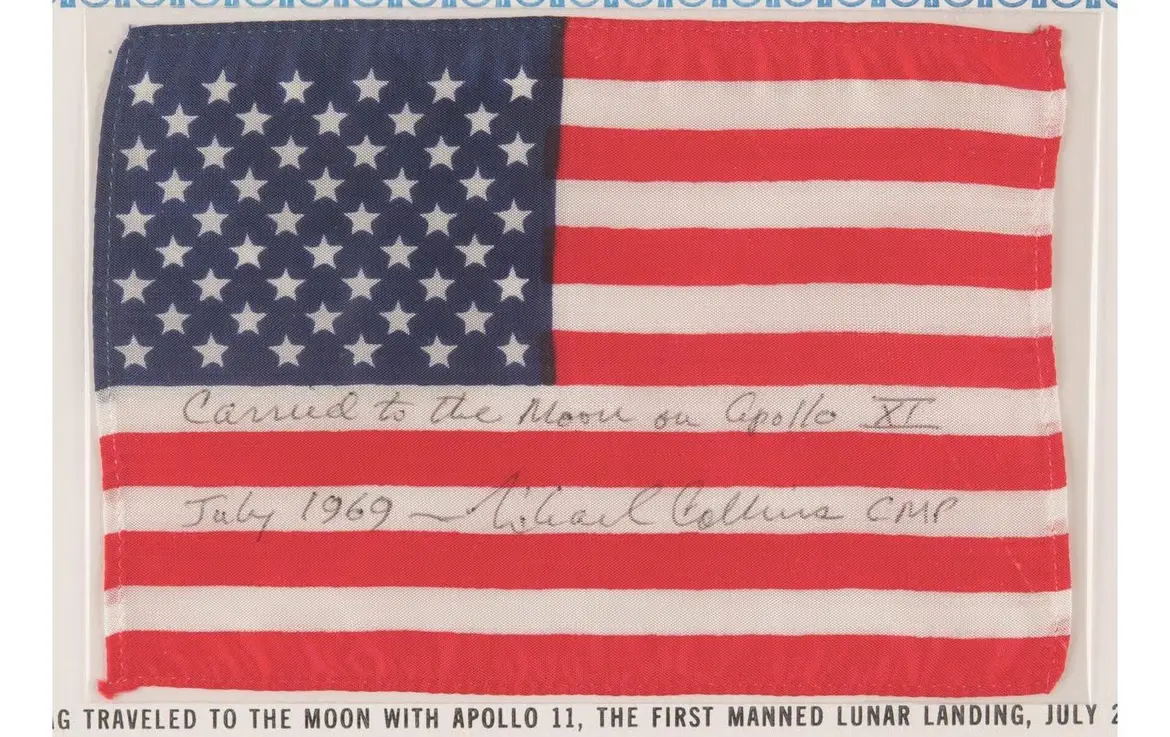 Carried to the Moon on Apollo XI
July 1969 — Michael Collins CMP
G TRAVELED TO THE MOON WITH APOLLO 11, THE FIRST MANNED LUNAR LANDING, JULY 2